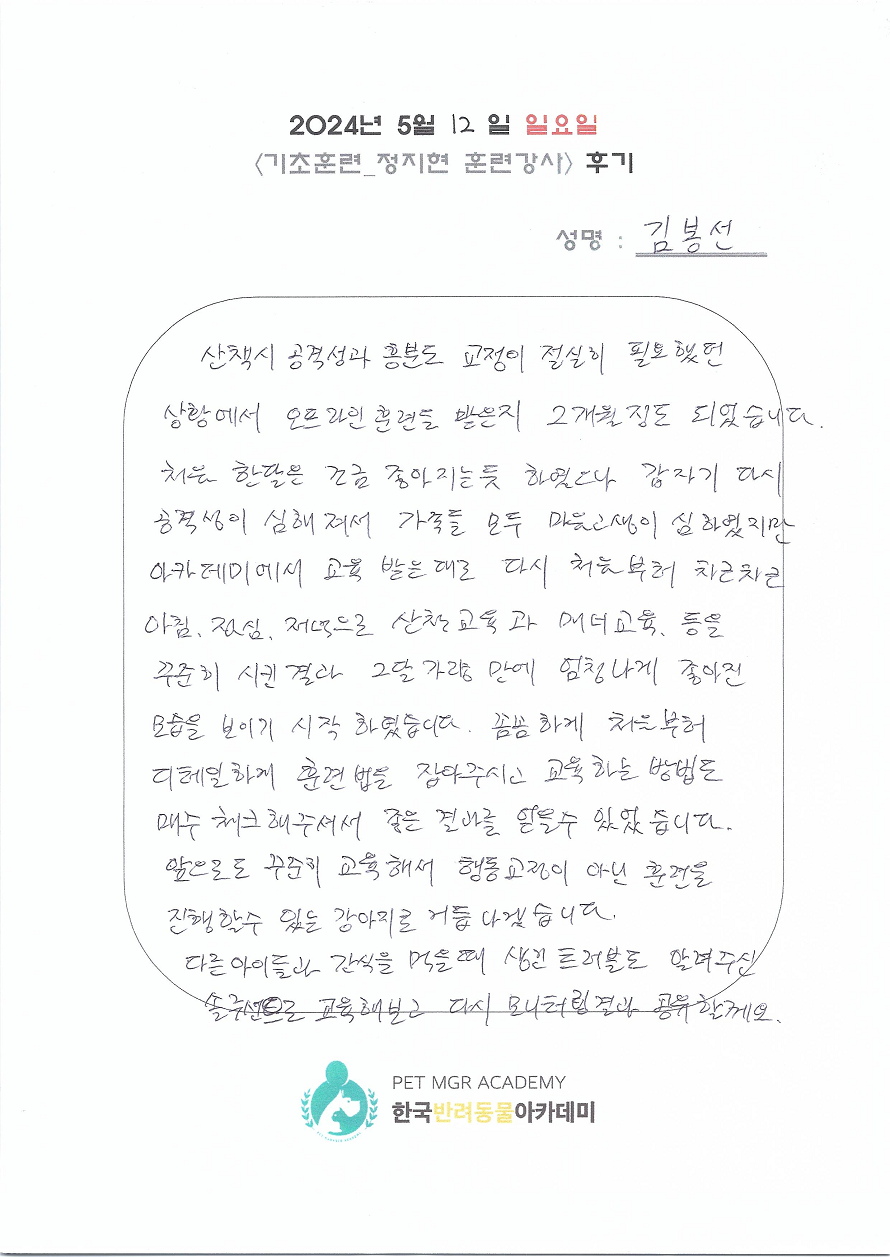 2024년 5월 12 일 일요일
<기초훈련_정지현 훈련강사> 후기
성명 : 김봉선
산책시 공격성과 흥분도 교정이 절실히 필요했던
상황에서 오프라인 훈련을 받은지 2개월 정도 되었습니다.
처음 한달은 조금 좋아지는듯 하였으나 갑자기 다시
공격성이 심해져서 가족들 모두 마음고생이 심하였지만
아카데미에서 교육 받은대로 다시 처음부터 차근차근
아침, 점심, 저녁으로 산책교육과 매너교육, 등을
꾸준히 시킨결과 2달가량 만에 엄청나게 좋아진
모습을 보이기 시작 하였습니다. 꼼꼼하게 처음부터
디테일하게 훈련법을 잡아주시고 교육하는 방법도
매주 체크해주셔서 좋은 결과를 얻을수 있었습니다.
앞으로도 꾸준히 교육해서 행동교정이 아닌 훈련을
진행할수 있는 강아지로 거듭나겠습니다.
다른아이들과 간식을 먹을때 생긴 트러블도 알려주신
솔루션으로 교육해보고 다시 모니터링결과 공유할께요.
PET MGR ACADEMY
한국반려동물아카데미